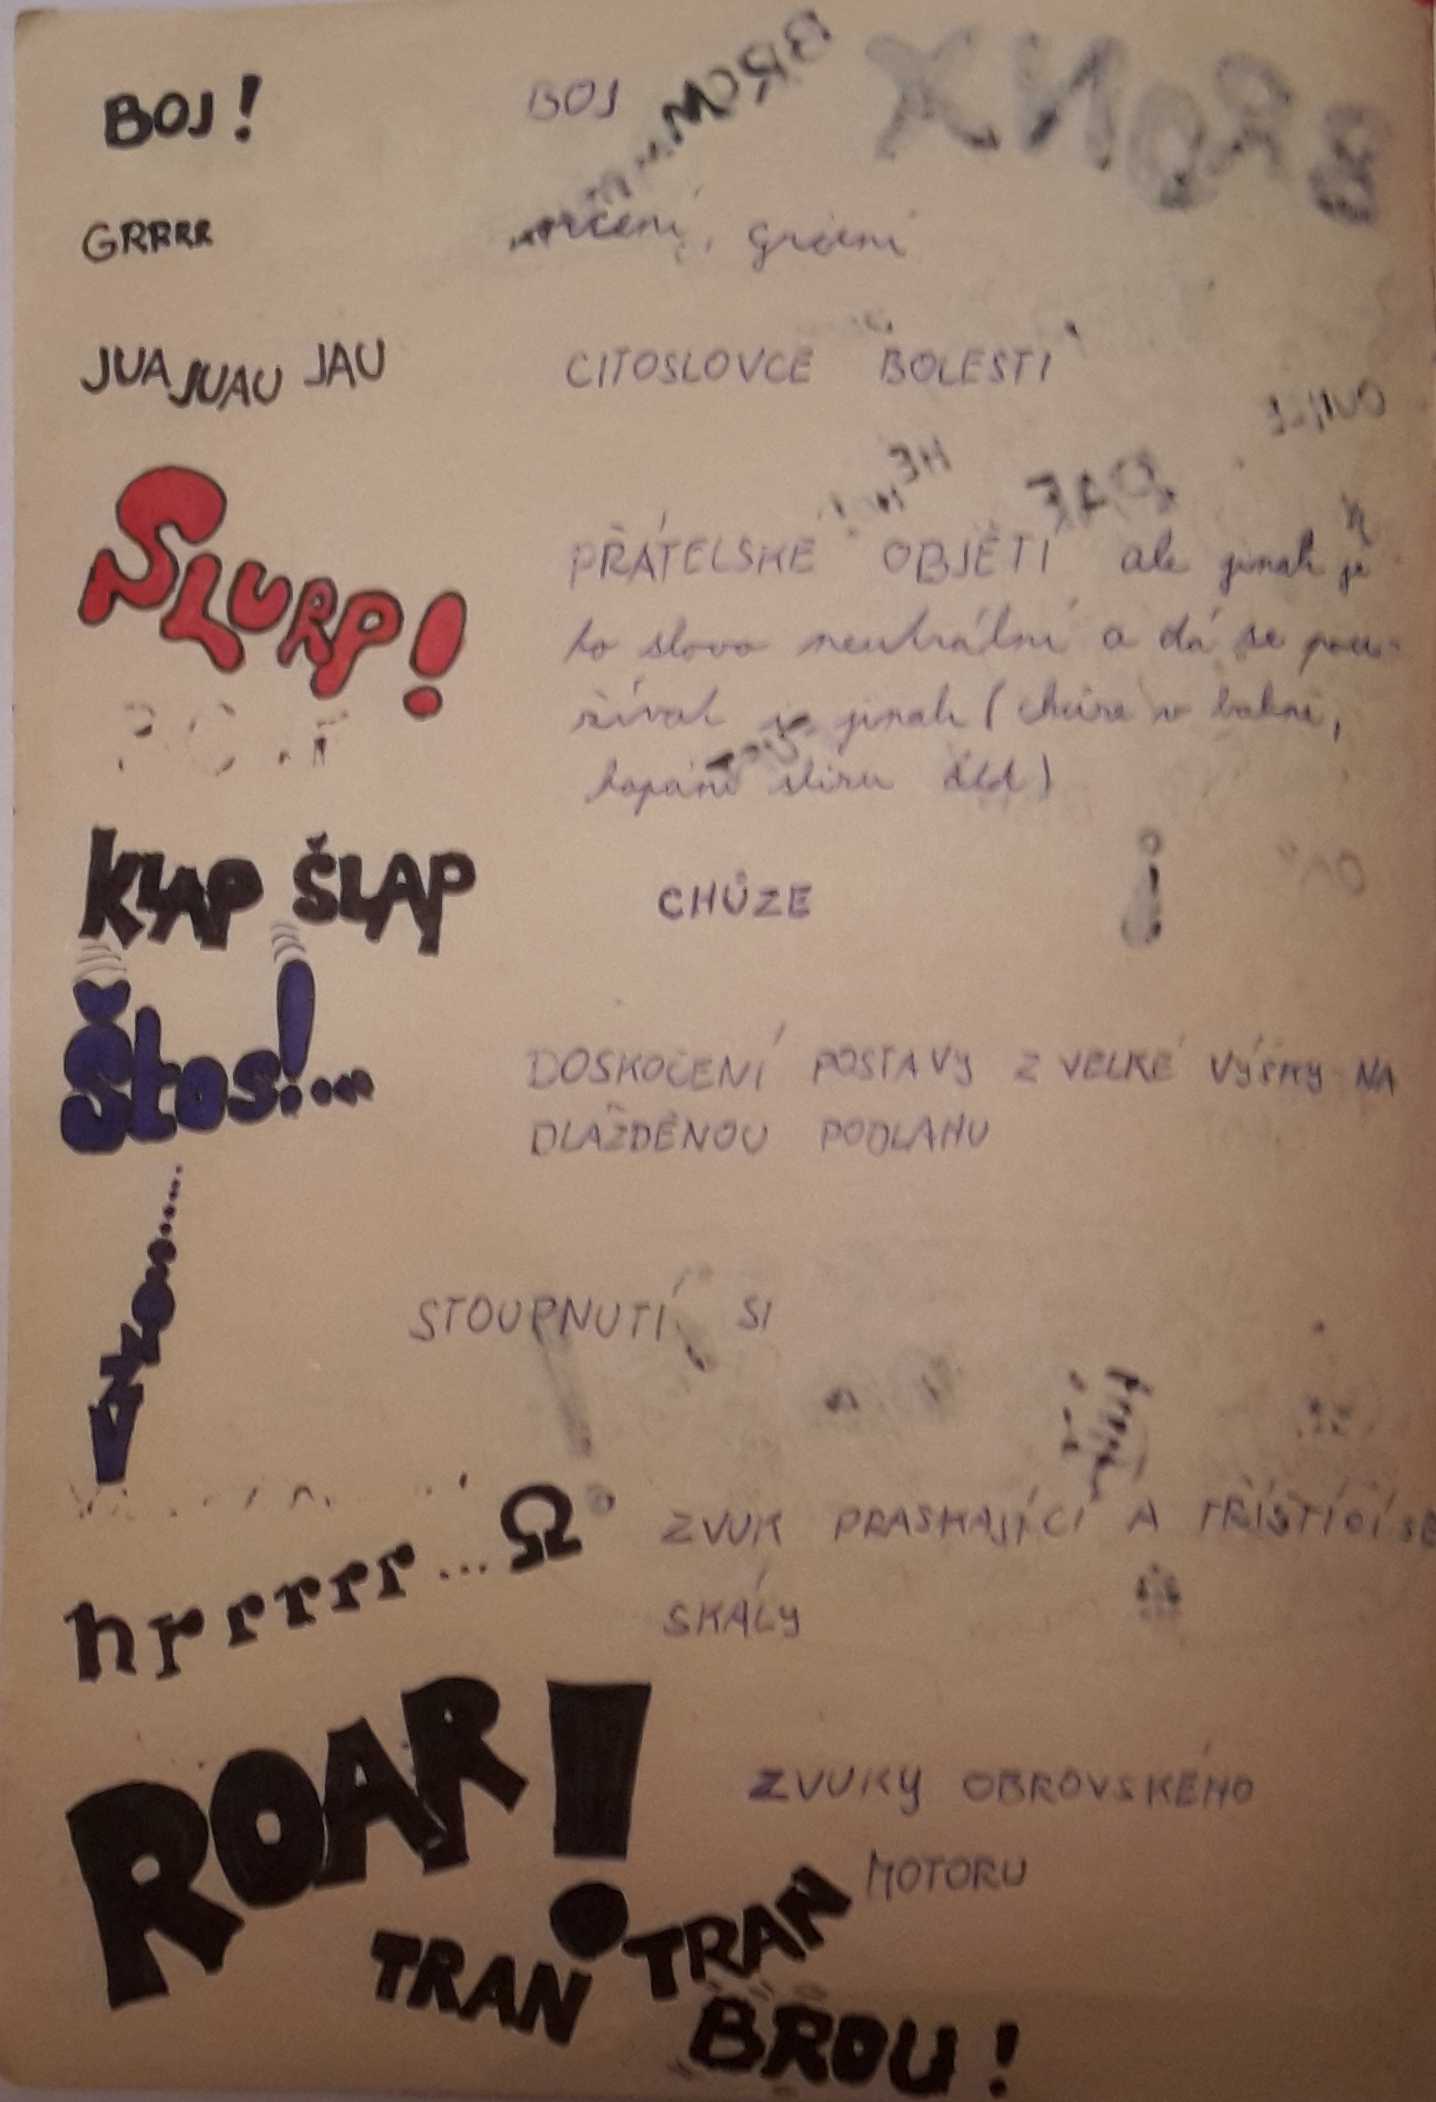 BOJ! BOJ
GRRRR vrčení, grčení
JUA JUAU JAU CITOSLOVCE BOLESTI
SLURP! PŘÁTELSKÉ OBJETÍ ale jinak je
to slovo neutrální a dá se pou-
žívat i jinak (chůze v bahně,
kapání slizu atd)
KLAP ŠLAP CHŮZE
Štos!... DOSKOČENÍ POSTAVY Z VELKÉ VÝŠKY NA
DLÁŽDĚNOU PODLAHU
STOUPNUTÍ SI
hrrrrr...Ω ZVUK PRASKAJÍCÍ A TŘÍŠTÍCÍ SE
SKÁLY
ROAR! ZVUKY OBROVSKÉHO
MOTORU
TRAN TRAN
BROU!